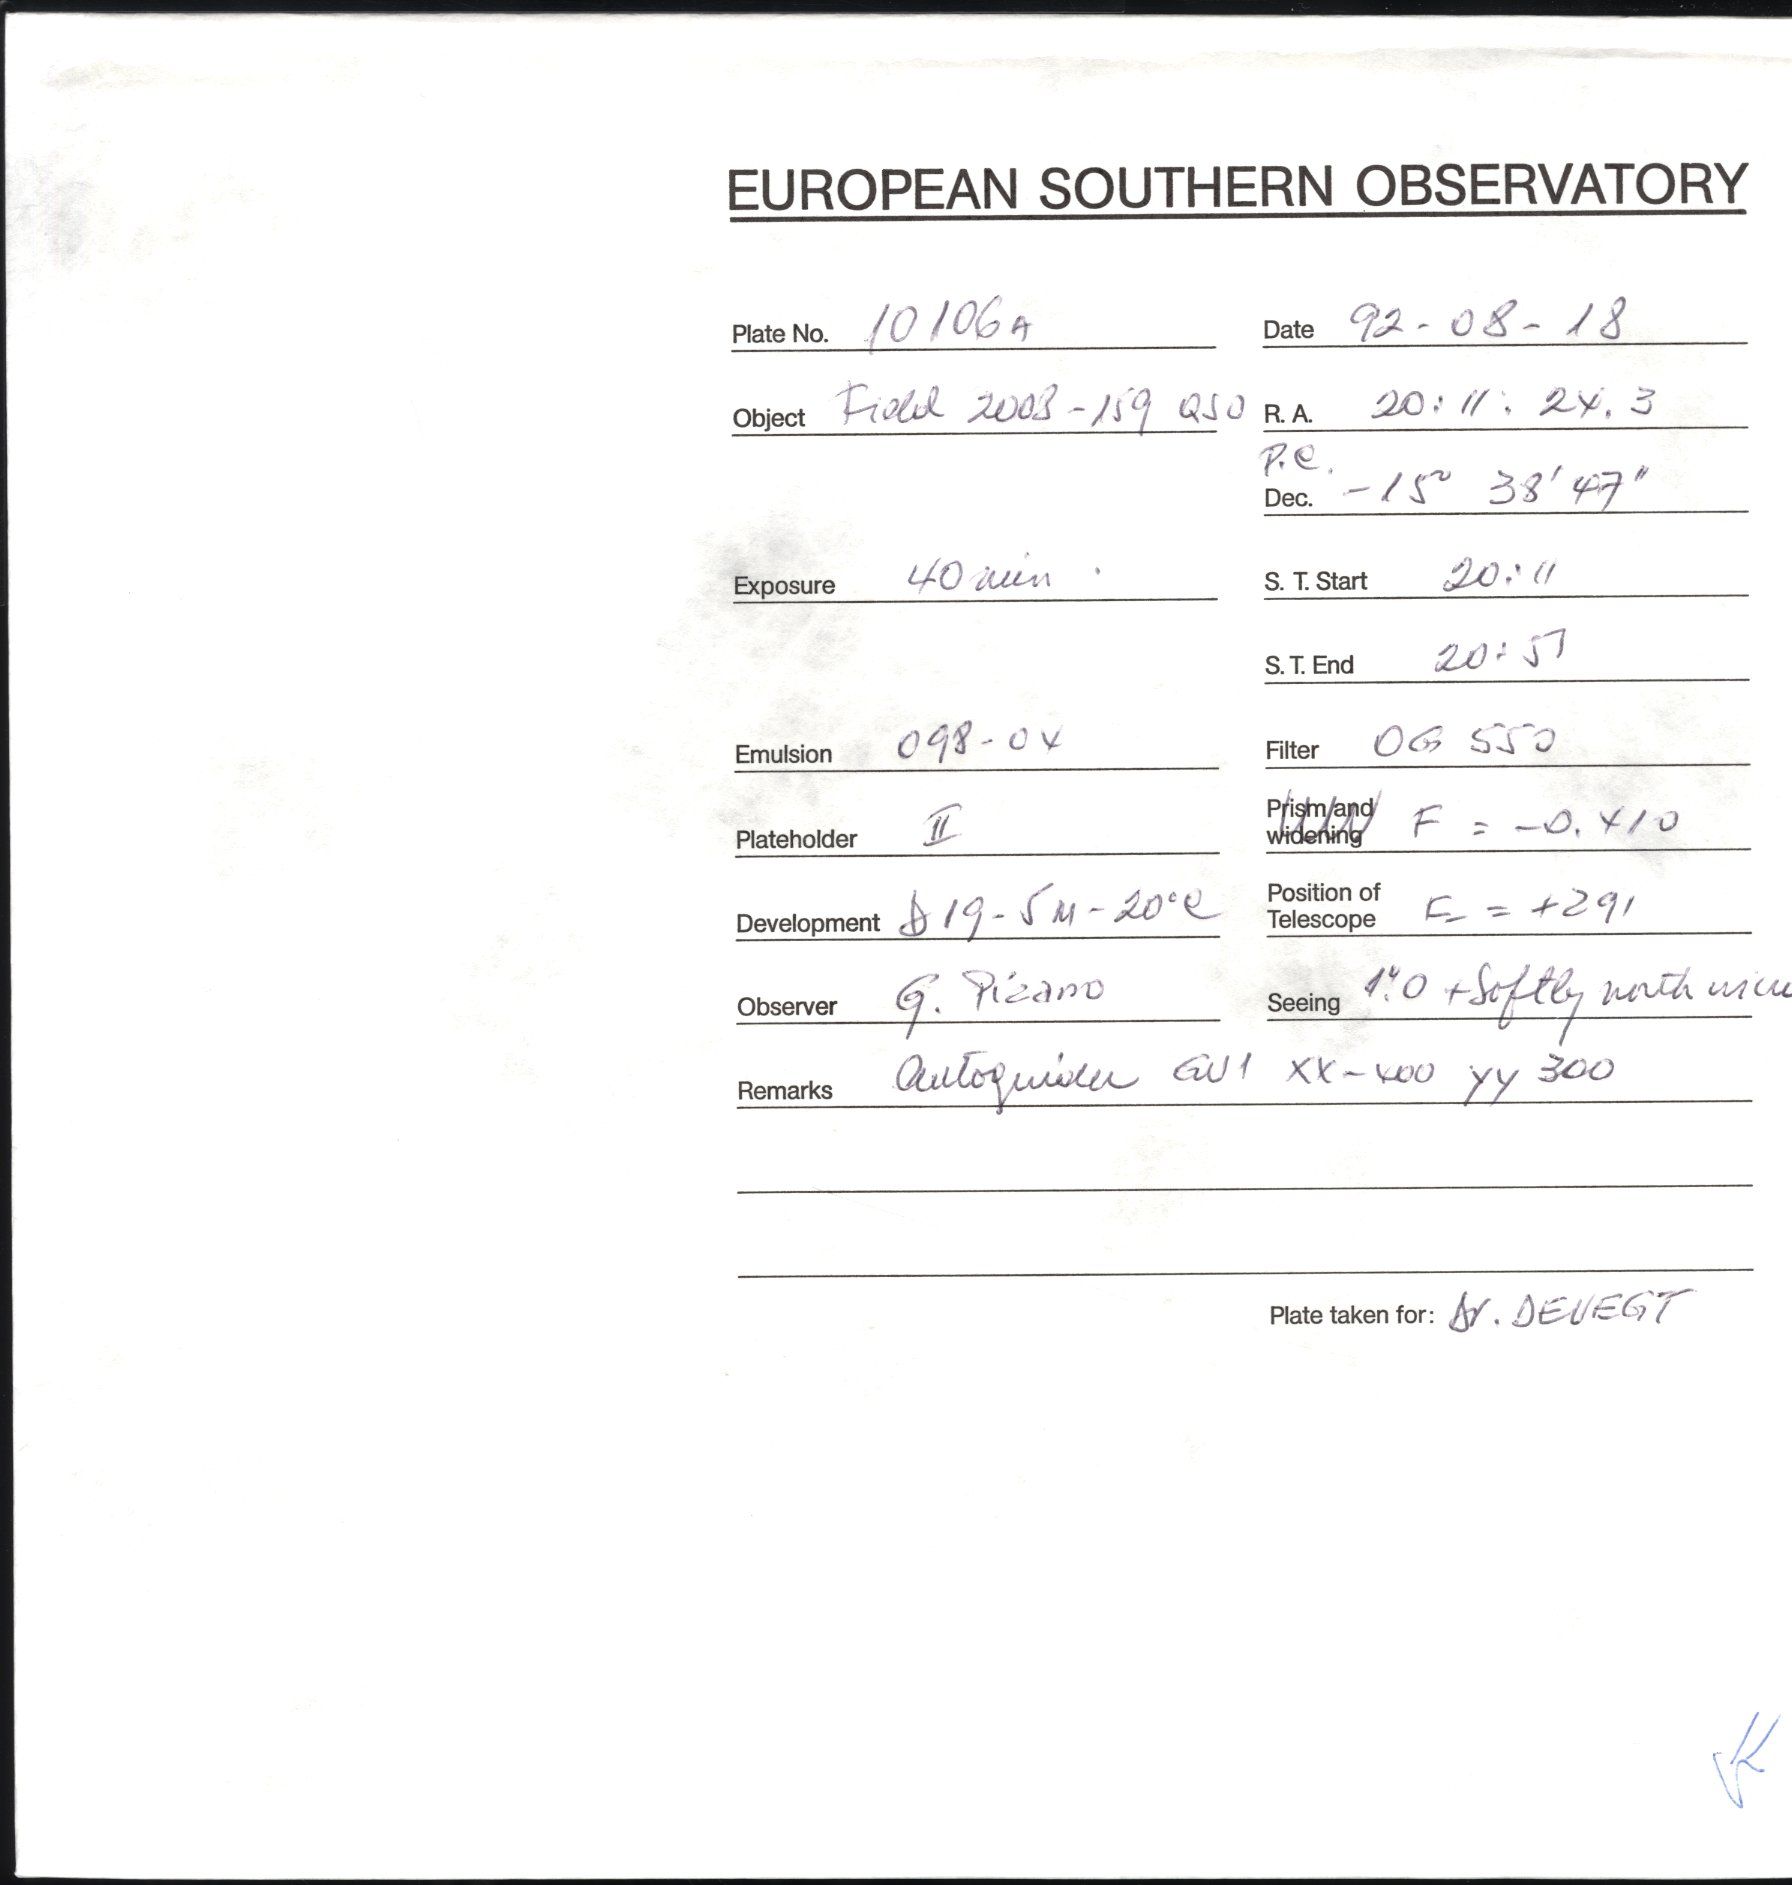 EUROPEAN SOUTHERN OBSERVATORY
Plate No. 10106A Date 92-08-18
Object Field 2008-159 QSO R. A. 20:11:24.3
P.C.
Dec. -15° 38' 47"
Exposure 40 min. S. T. Start 20:11
S. T. End 20:51
Emulsion 098-04 Filter OG 550
Plateholder II Prism and widening F = -0.410
Development D19-5M-20°C Position of Telescope E = +291
Observer G. Pizarro Seeing 1".0 + Softly north
Remarks Autoguider GV1 XX-400 YY 300
Plate taken for: Dr. DEVEGT